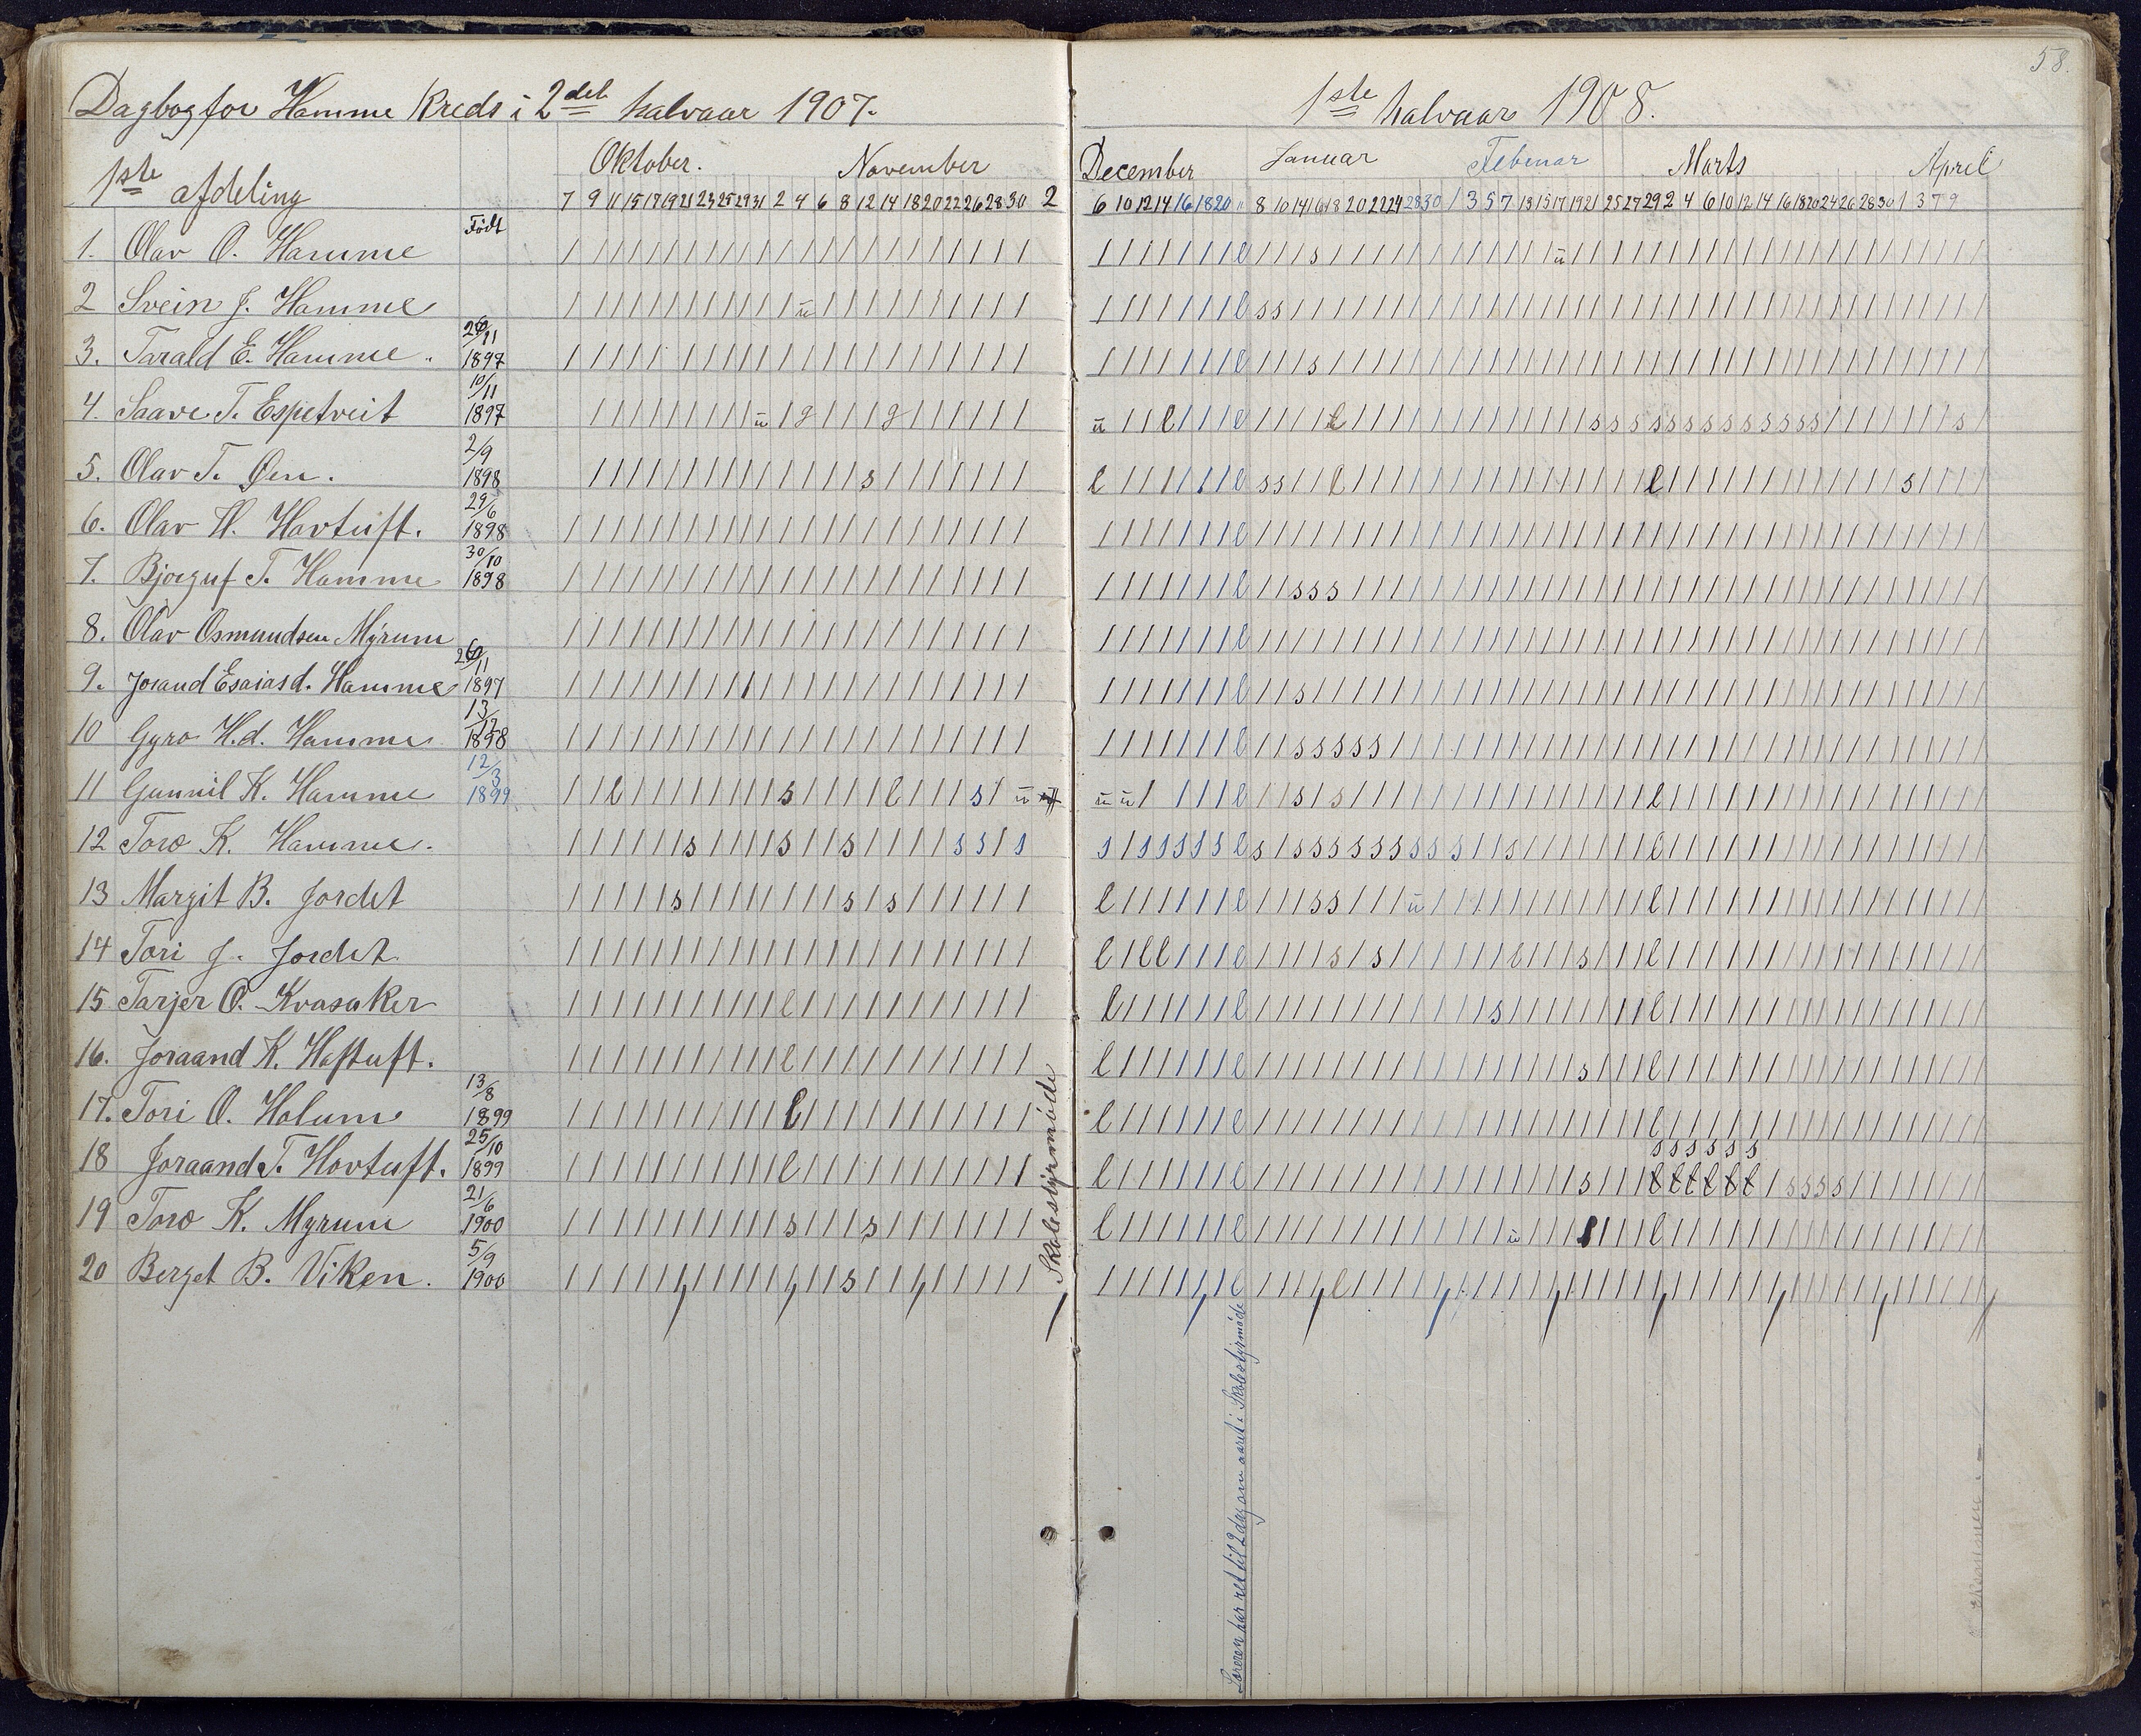 Dagbog for Homme Kreds i 2det halvaar 1907.
1ste afdeling
Født
Oktober. November
7 9 11 15 17 19 21 23 25 29 31 2 4 6 8 12 14 18 20 22 26 28 30 2
1. Olav O. Homme
2 Svein J. Homme
3. Tarald E. Homme. 26/11 1897
4. Saave T. Espetveit 10/11 1897
5. Olav T. Øen. 2/9 1898
6. Olav H. Hovtuft. 29/6 1898
7. Bjorguf T. Homme 30/10 1898
8. Olav Osmundsen Myrum
9. Jorand Esaiasd. Homme 26/11 1897
10 Gyro H.d. Homme 13/12 1898
11 Gunnil K. Homme 12/3 1899
12 Toro K. Homme.
13 Margit B. Jordet
14 Tori J. Jordet
15 Tarjer O. Kvasaker
16. Joraand K. Haftuft.
17. Tori O. Holum 13/8 1899
18 Joraand T. Hovtuft. 25/10 1899
19 Toro K. Myrum 21/6 1900
20 Berget B. Viken. 5/9 1900
Skolestyrmøde
58.
1ste halvaar 1908.
December Januar Februar Marts April
6 10 12 14 16 18 20 11 8 10 14 16 18 20 22 24 28 30 1 3 5 7 13 15 17 19 21 25 27 29 2 4 6 10 12 14 16 18 20 24 26 28 30 1 3 7 9
Læreren har ret til 2 dag om aaret i Skolestyrmøde
Eksamen